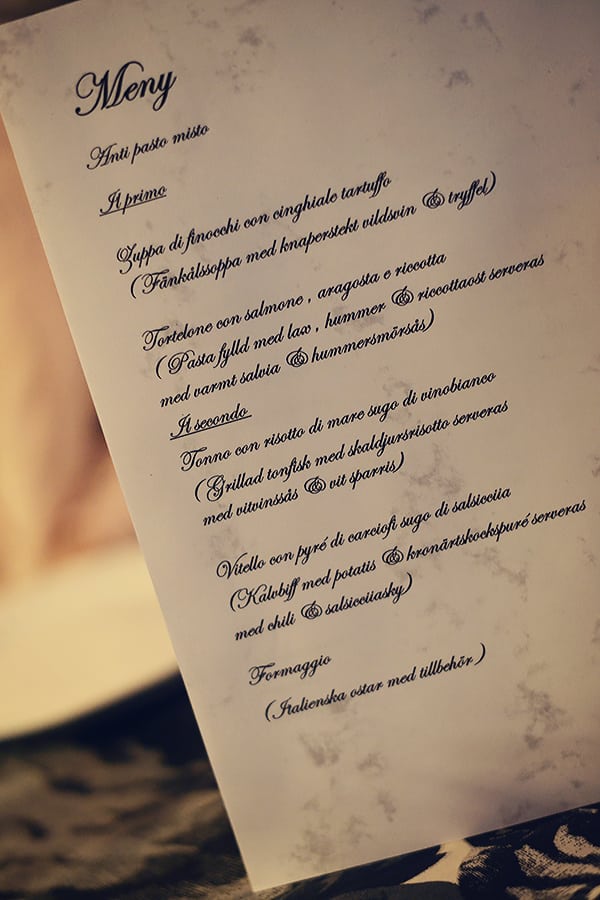 Meny
Anti pasto misto
Il primo
Zuppa di finocchi con cinghiale tartuffo
(Fänkålssoppa med knaperstekt vildsvin & tryffel)
Tortelone con salmone , aragosta e riccotta
( Pasta fylld med lax , hummer & riccottaost serveras
med varmt salvia & hummersmörsås)
Il secondo
Tonno con risotto di mare sugo di vinobianco
(Grillad tonfisk med skaldjursrisotto serveras
med vitvinssås & vit sparris)
Vitello con pyré di carciofi sugo di salsicciia
(Kalvbiff med potatis & kronärtskockspuré serveras
med chili & salsicciiasky)
Formaggio
(Italienska ostar med tillbehör )